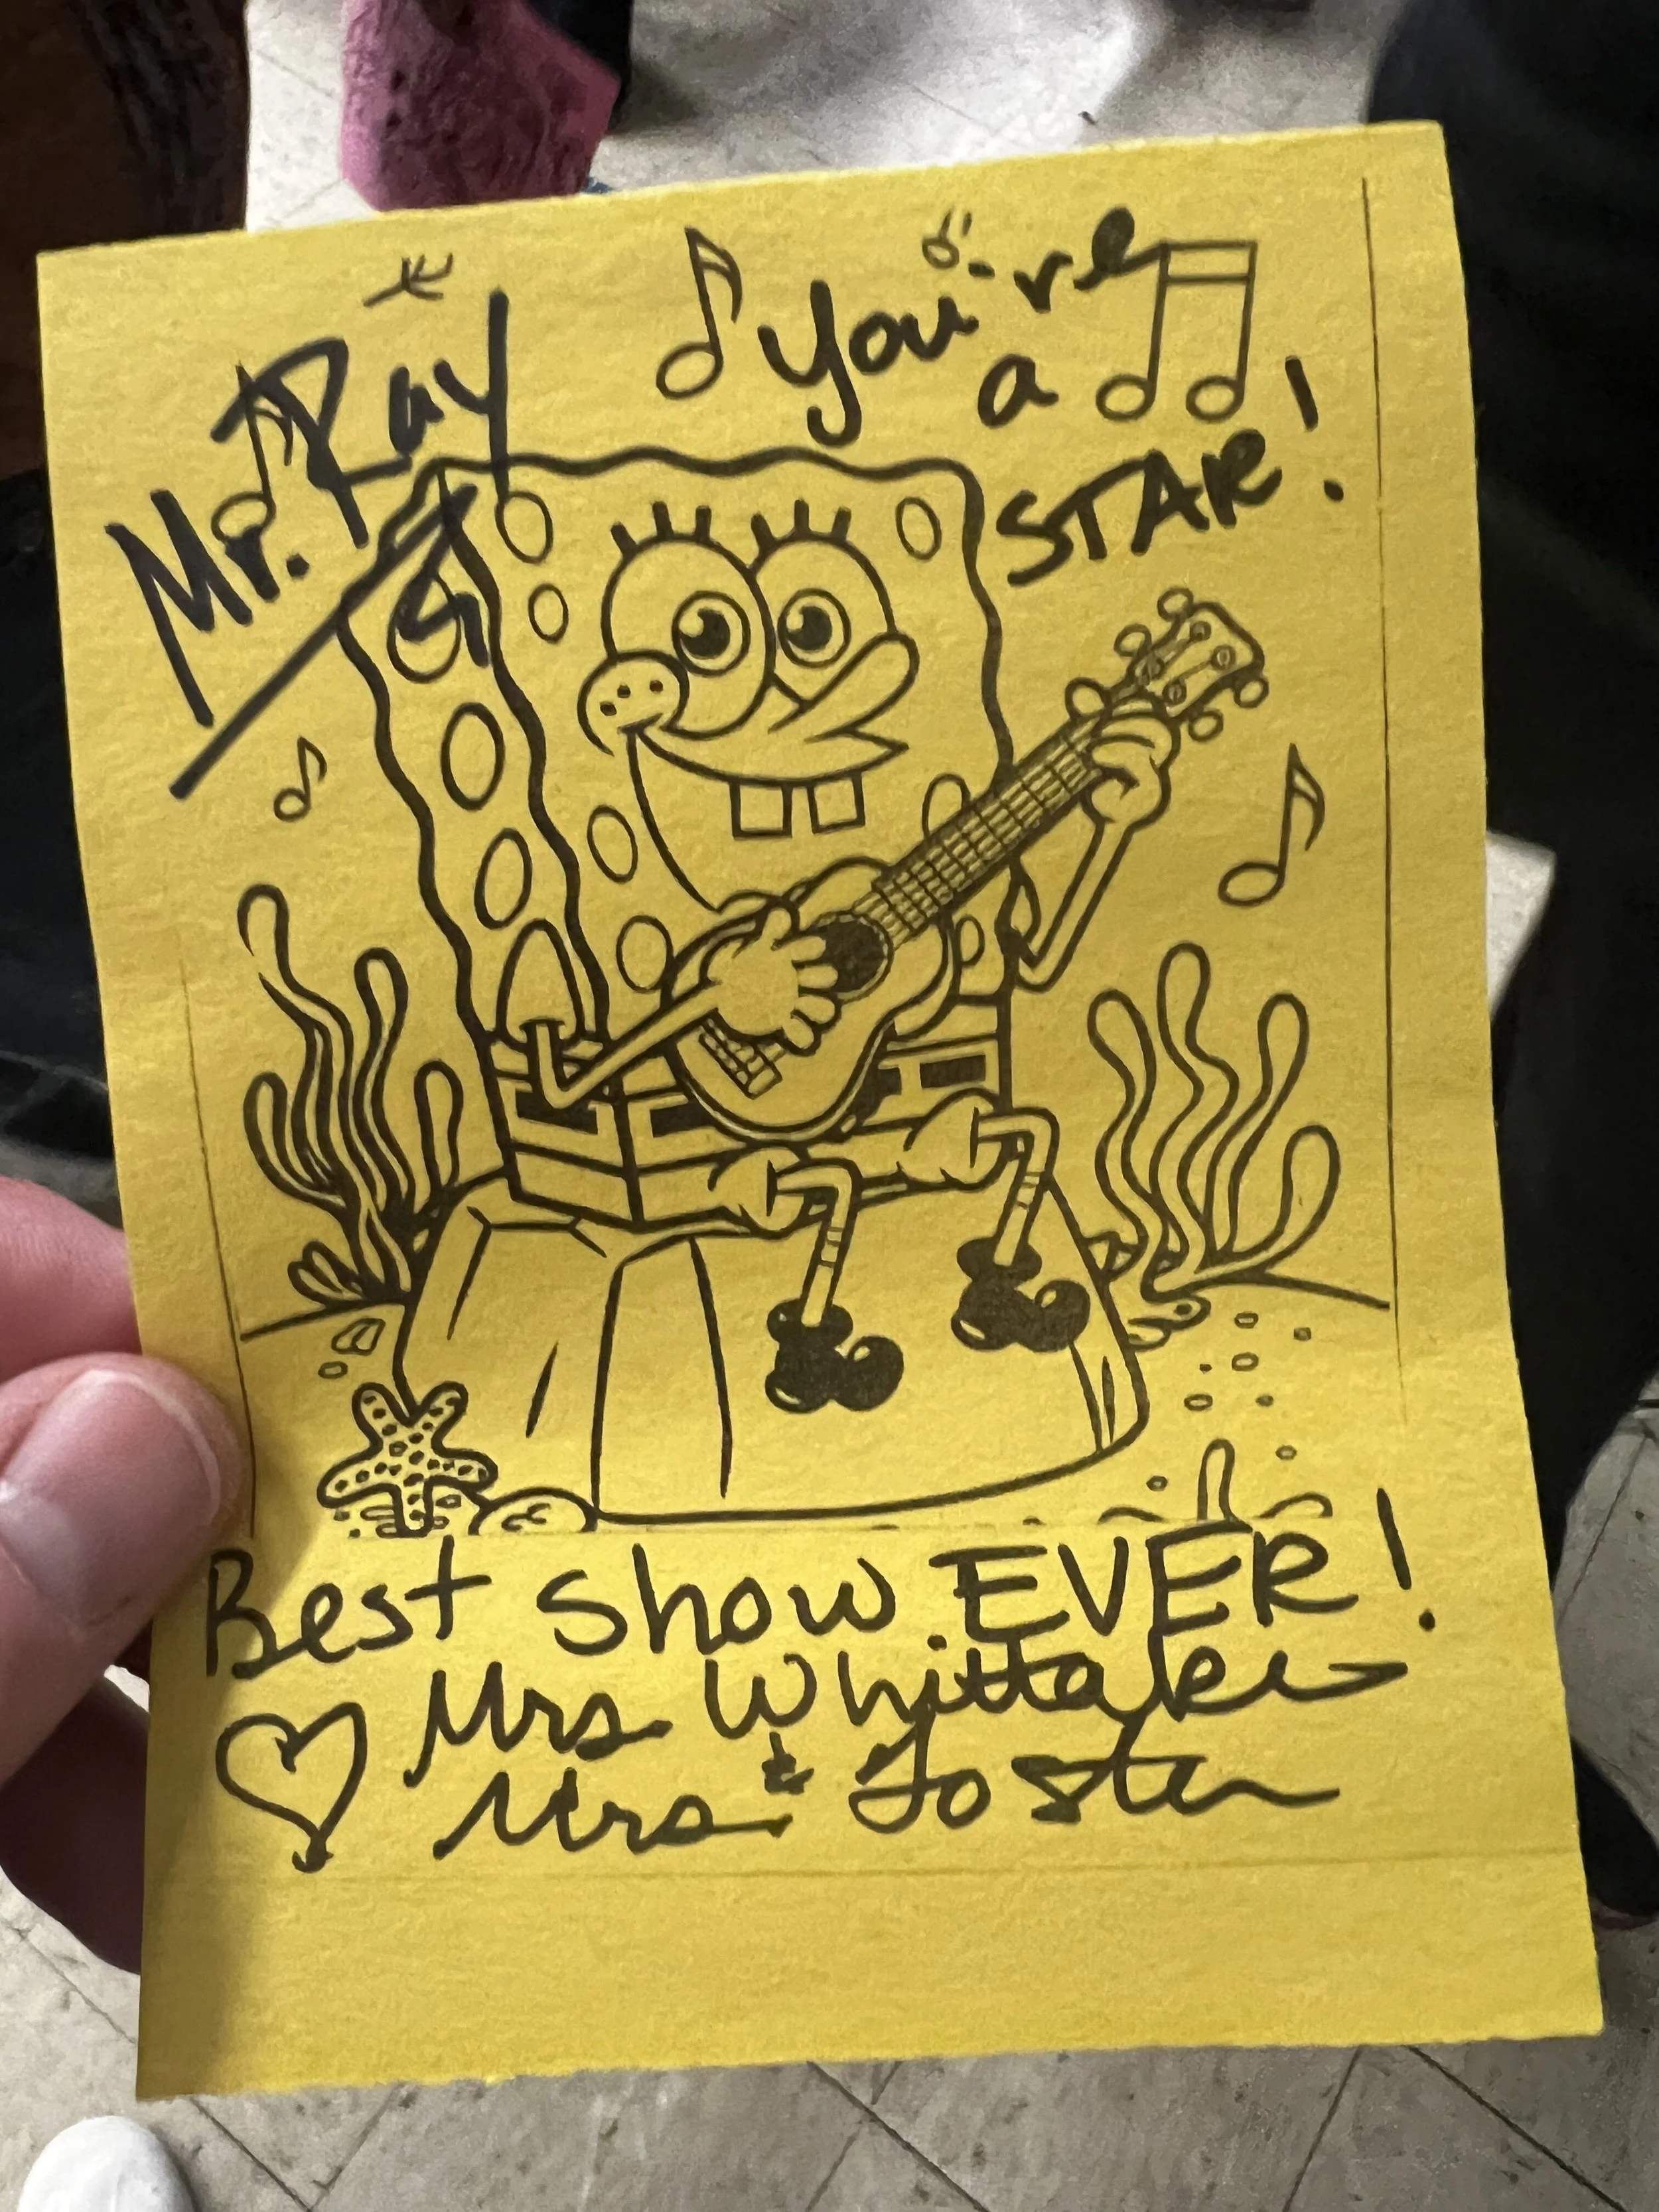 Mr. Ray
You're
a
STAR!
Best show EVER!
Mrs Whittaker
&
Mrs Foster